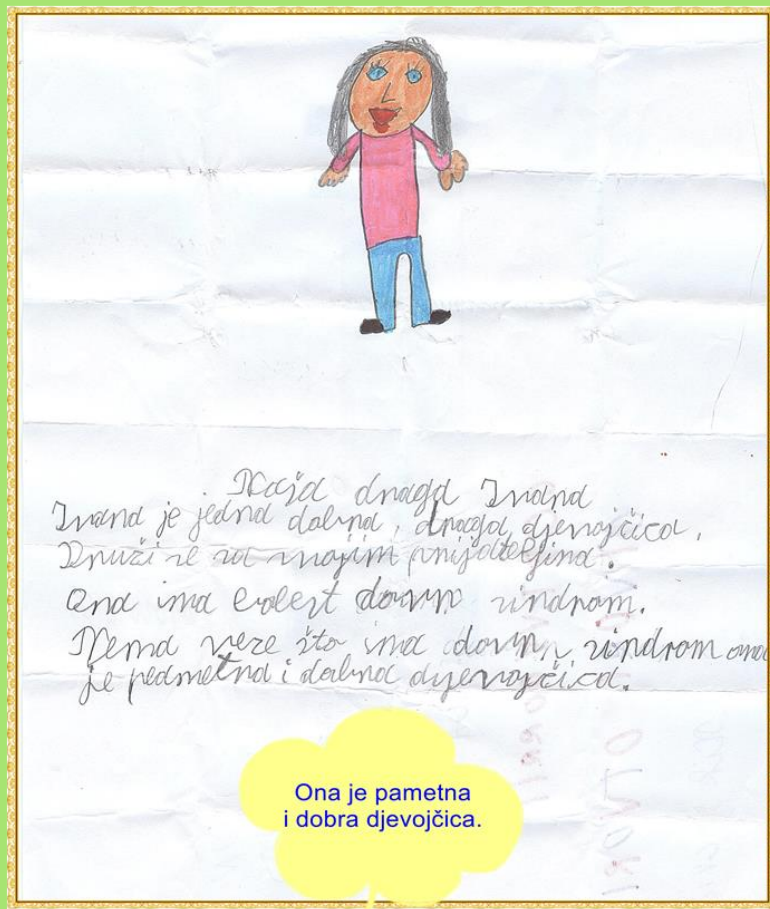 Moja draga Ivana
Ivana je jedna dobra, draga djevojčica.
Druži se sa svojim prijateljima.
Ona ima down sindrom.
Nema veze što ima down sindrom ona
je pedmetna i dobra djevojčica.
Ona je pametna
i dobra djevojčica.